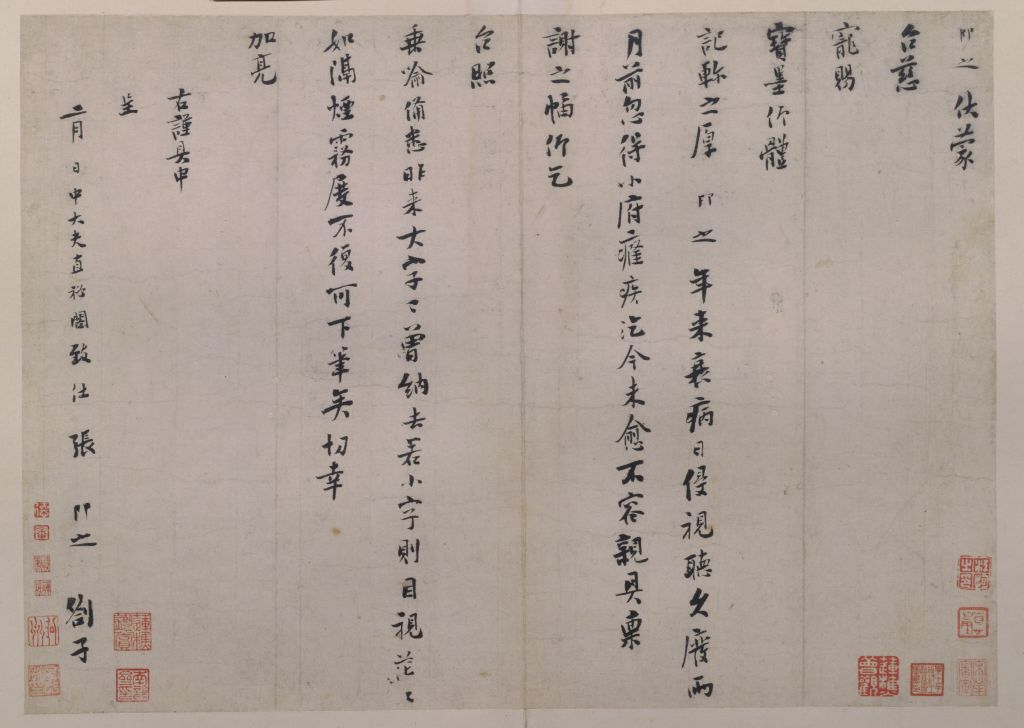 即之 伏蒙
台慈
寵賜
寶墨仰體
記軫之厚 即之 年来衰病日侵視聽久廢两
月前忽得小府癃疾迄今未愈不容親具稟
謝之幅仰乞
台照
垂喻備悉昨来大字已曾納去若小字則目視茫々
如隔煙霧廢不復可下筆矣切幸
加亮
右謹具申
呈
二月 日中大夫直祕閣致仕 張 即之 劄子